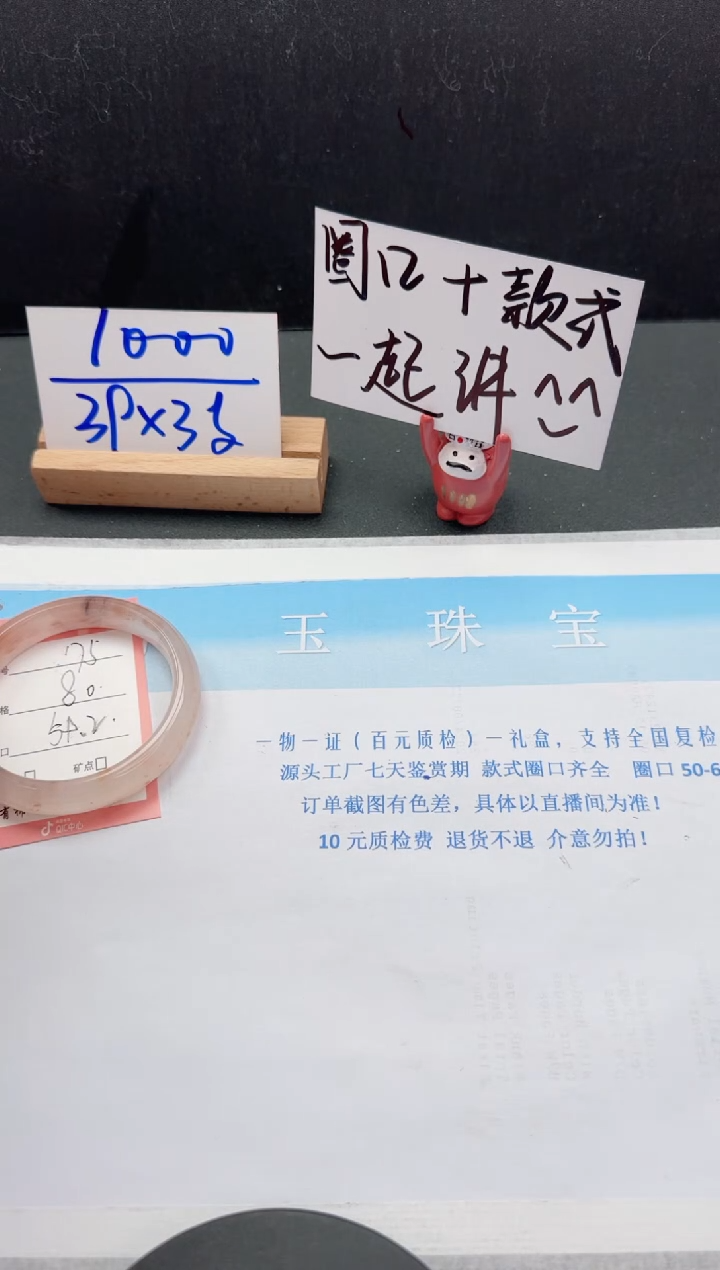 圈口+款式
一起讲^^
1000
3P×3支
玉 珠 宝
175
80.
54.2.
矿点
一物一证(百元质检)一礼盒,支持全国复检
源头工厂七天鉴赏期 款式圈口齐全 圈口50-6
订单截图有色差,具体以直播间为准!
10元质检费 退货不退 介意勿拍!